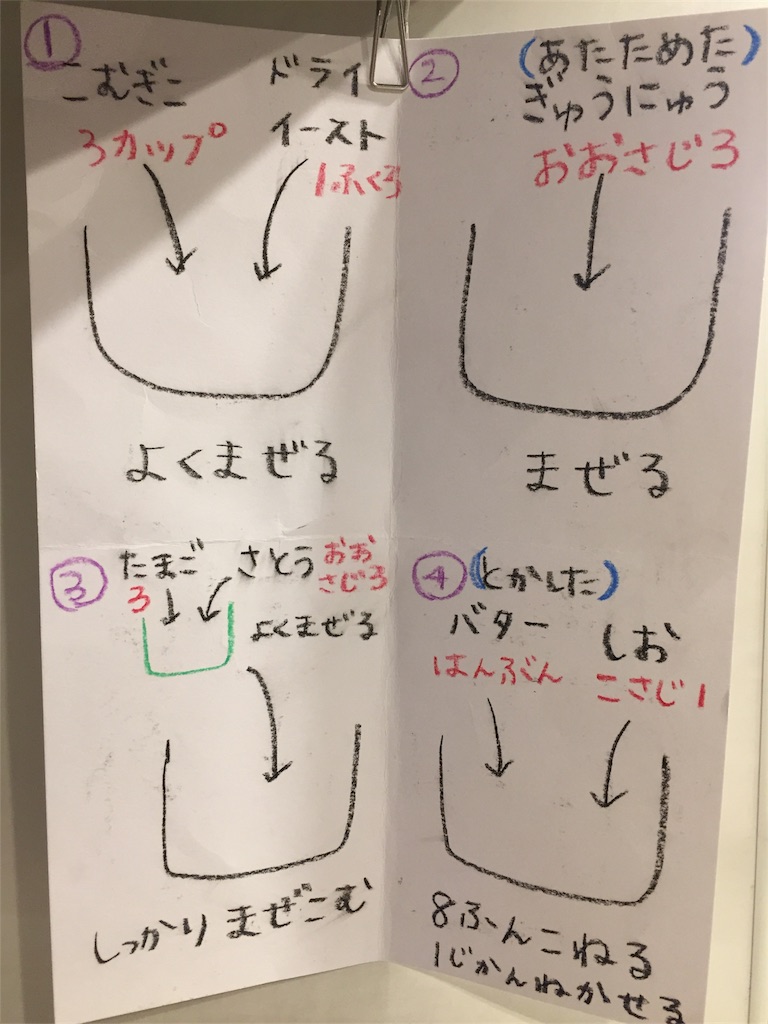 ①
こむぎこ
3カップ
ドライ
イースト
1ふくろ
よくまぜる
②
(あたためた)
ぎゅうにゅう
おおさじ3
まぜる
③
たまご
3
さとう おお
さじ3
よくまぜる
しっかりまぜこむ
④
(とかした)
バター
はんぶん
しお
こさじ1
8ふんこねる
1じかんねかせる